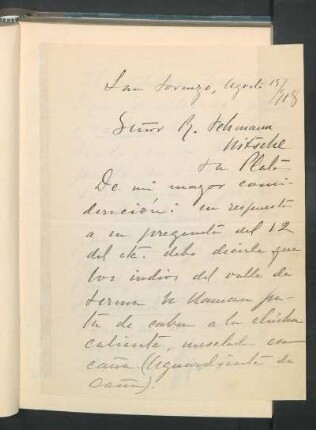 San Lorenzo, Agosto 15/918
Señor R. Lehmann
Nitsche
La Plata
De mi mayor consi-
deración: en respuesta
a su pregunta del 12
del cte. debo decirle que
los indios del valle de
Lerma llaman pa-
ta de cabra a la chicha
caliente, mezclada con
caña. (Aguardiente de
caña).